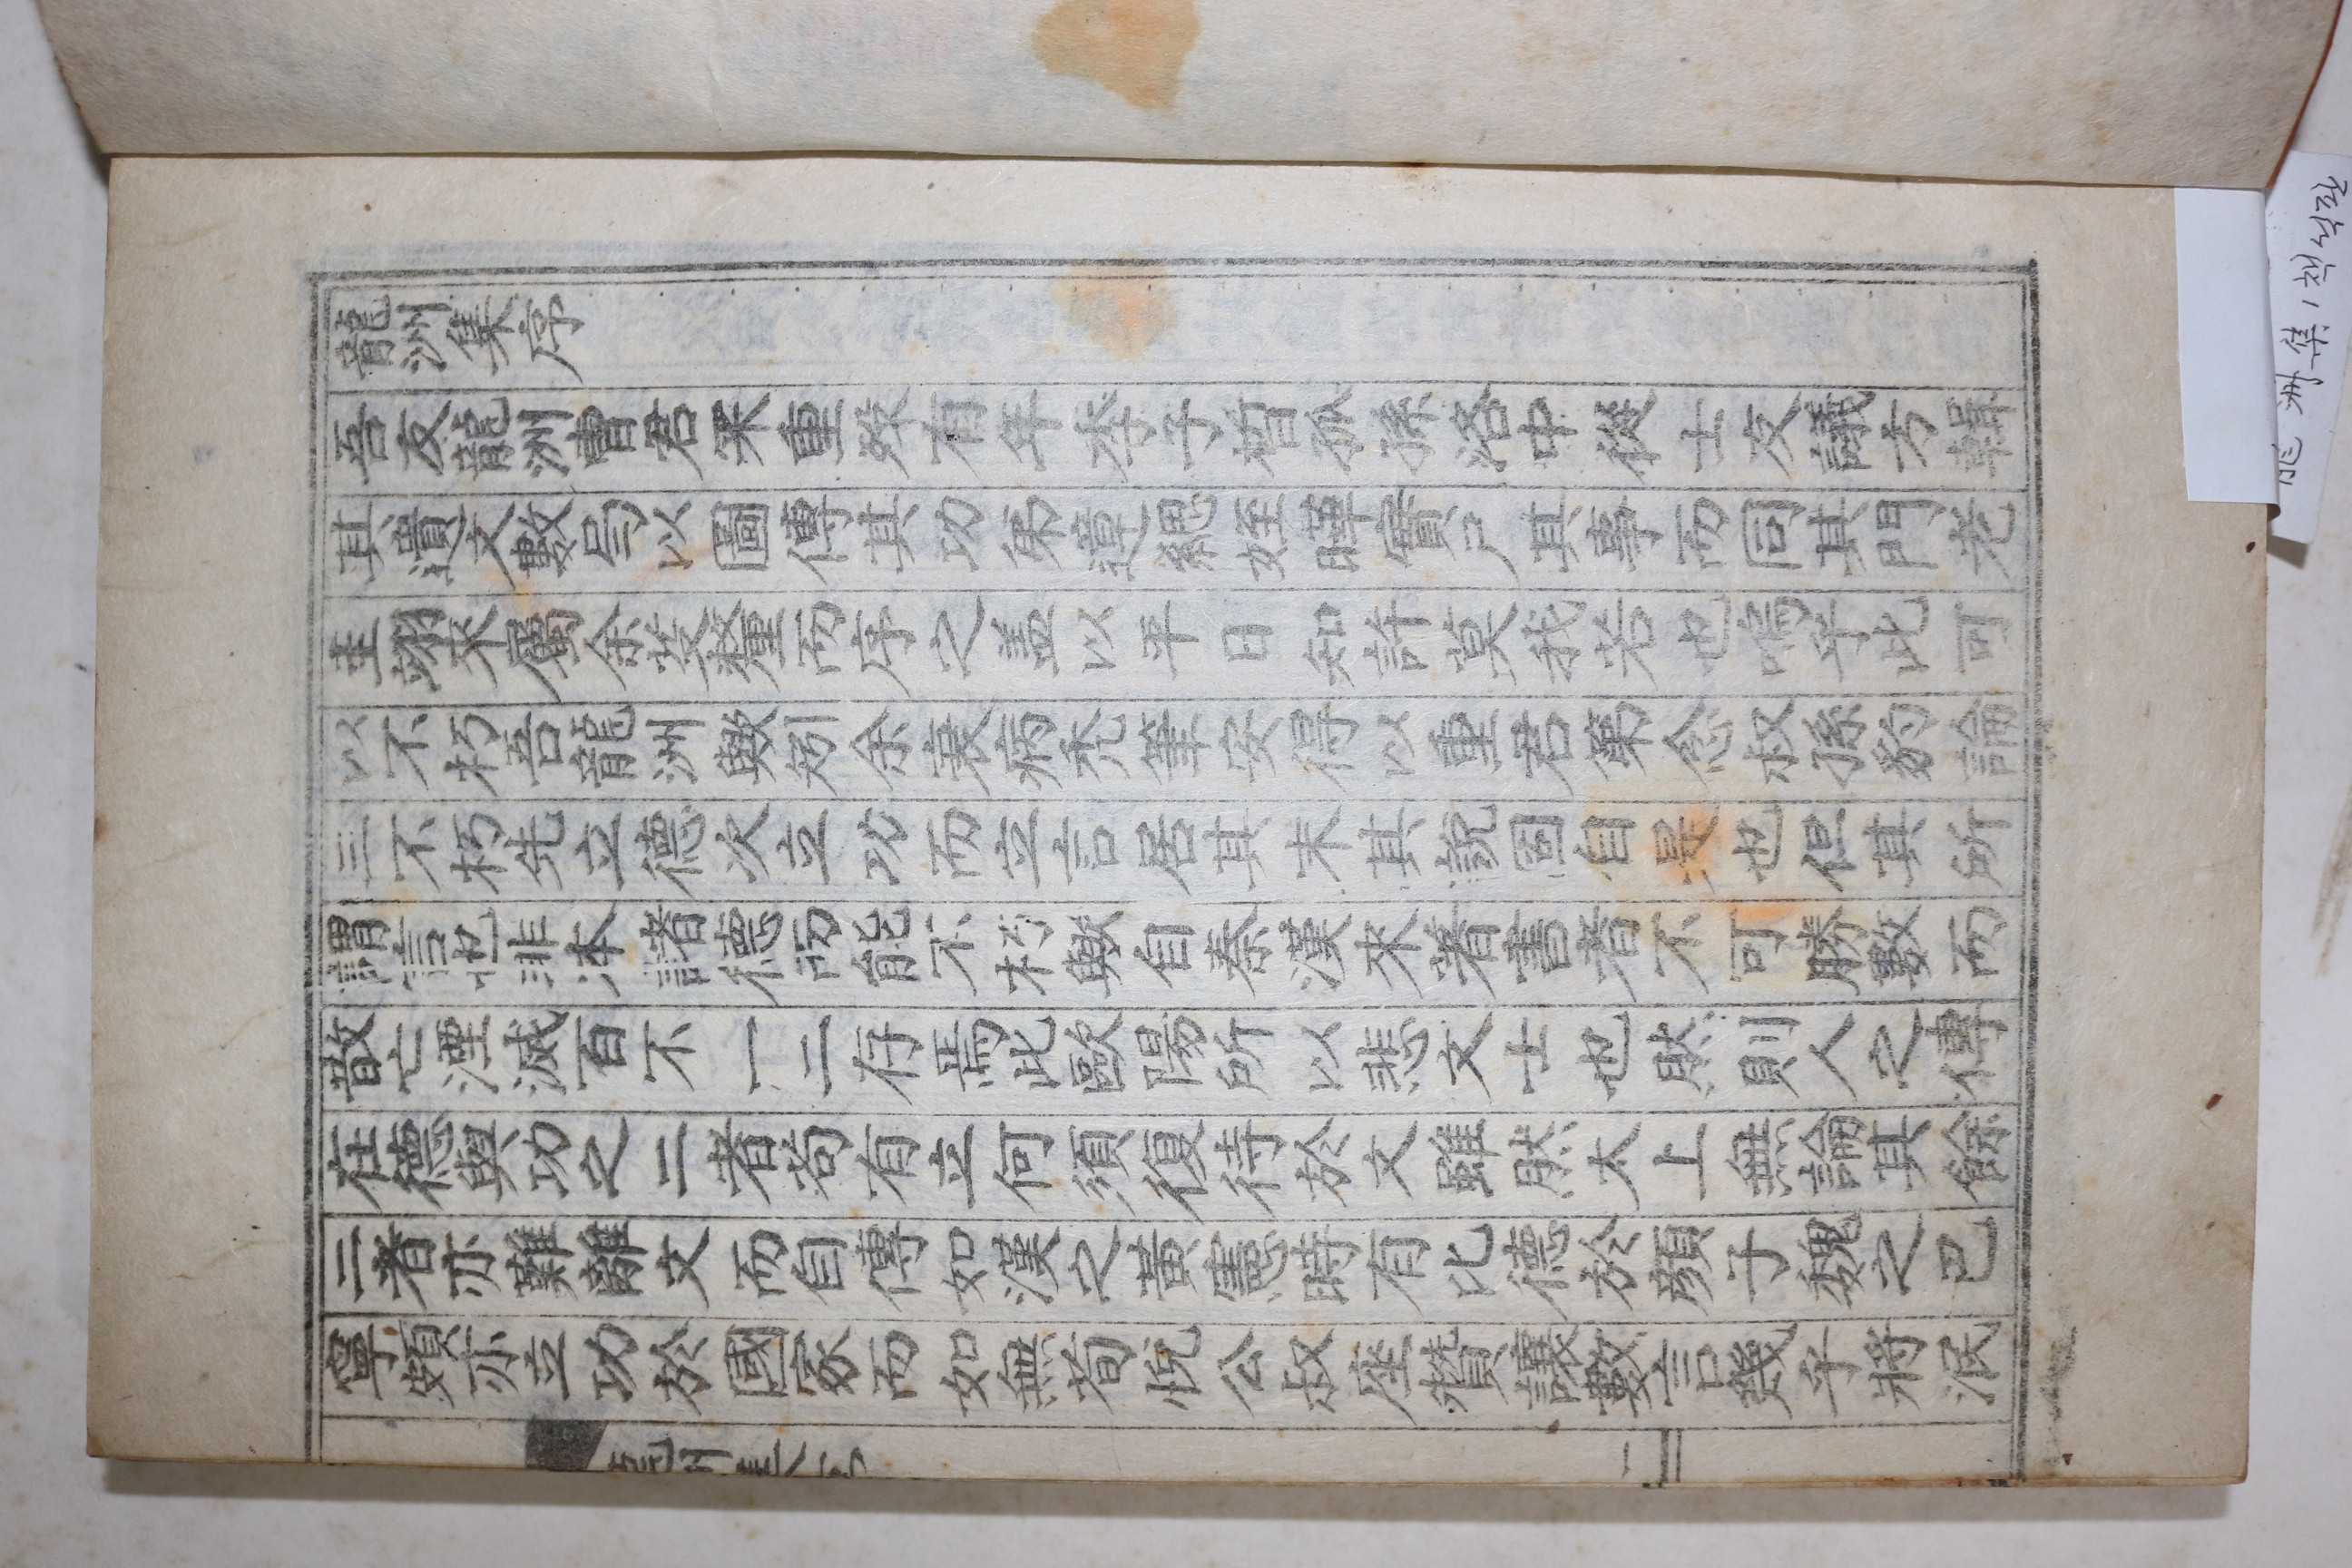 龍洲集序
吾友龍洲曺君釆重歿有年季子晳孤孫洛中從士友議方輯
其遺文數㢧以圖傳其功弟漳緦姪曄實尸其事而同其門老
圭翊來屬余芟釐而序之盖以平日知許莫我若也嗚乎此可
以不朽吾龍洲歟矧余衰病禿筆安得以重君第念叔孫豹論
三不朽先立德次立功而立言居其末其說固自是也但其所
謂言也非本諸德而能不朽歟自秦漢來著書者不可勝數而
散亡湮滅百不一二存焉此歐陽所以悲文士也然則人之傳
在德與功之二者苟有立何須復待於文雖然太上無論其餘
二者亦難離文而自傳如漢之黃憲時有比德於顔子魏之巴
寧頗亦立功於國家而如無荀悅公叔座贊讓數言幾乎將泯
龍洲集序
一
龍洲集1책석판